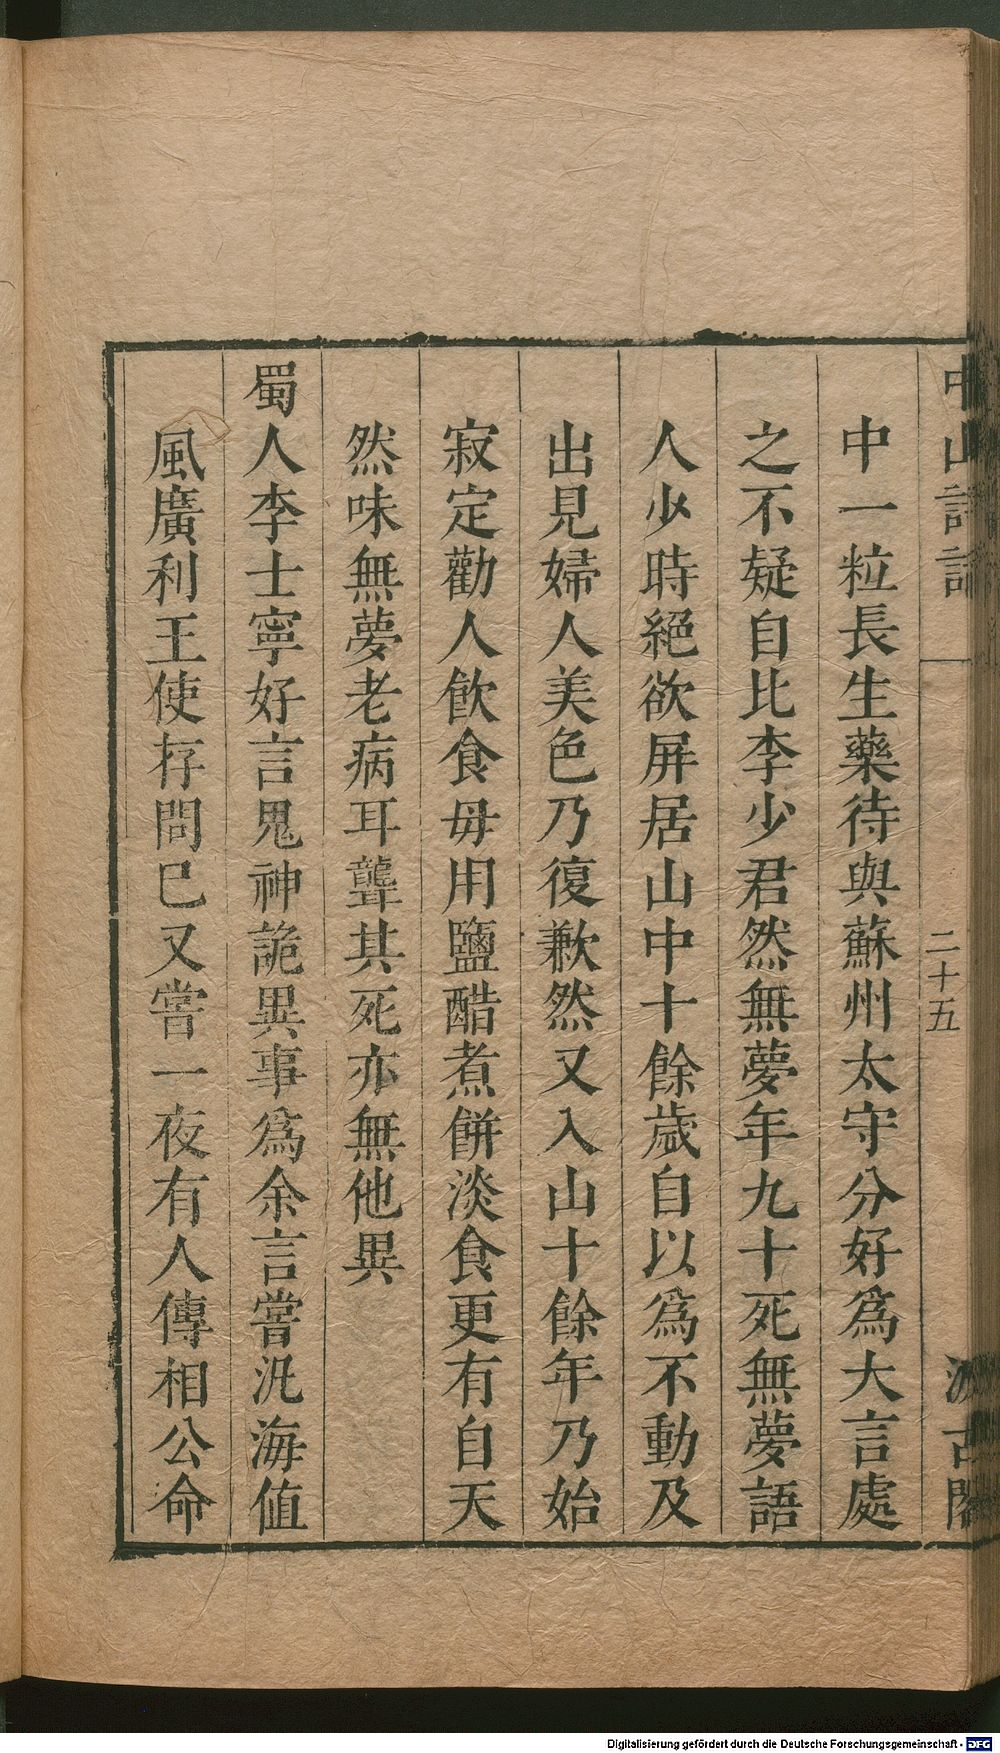 中山詩話
二十五
汲古閣
中一粒長生藥待與蘇州太守分好爲大言處
之不疑自比李少君然無夢年九十死無夢語
人少時絕欲屏居山中十餘歲自以爲不動及
出見婦人美色乃復歉然又入山十餘年乃始
寂定勸人飲食毋用鹽醋煮餅淡食更有自天
然味無夢老病耳聾其死亦無他異
蜀人李士寧好言鬼神詭異事爲余言嘗汎海值
風廣利王使存問已又嘗一夜有人傳相公命
Digitalisierung gefördert durch die Deutsche Forschungsgemeinschaft - DFG